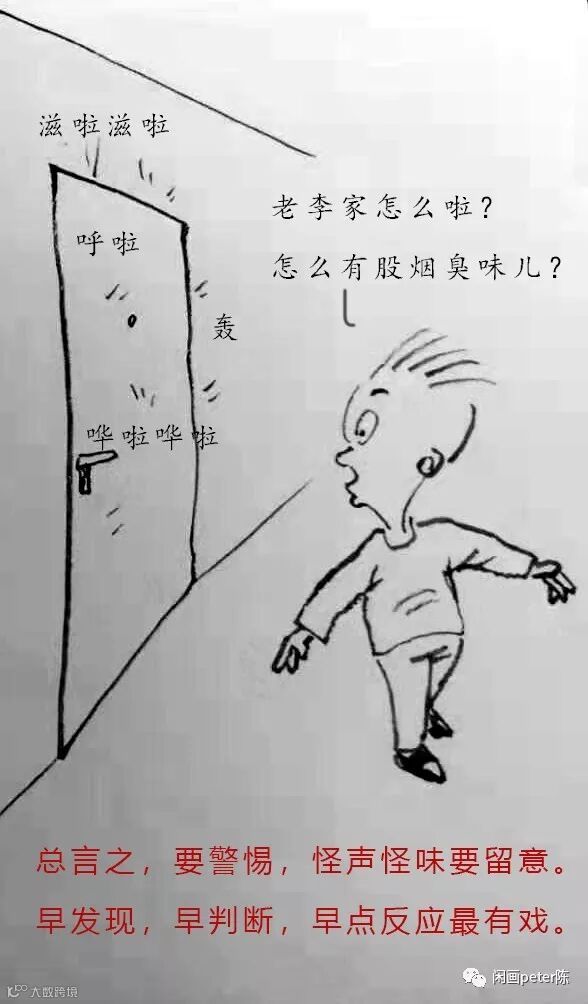 滋啦滋啦
呼啦
轰
哗啦哗啦
老李家怎么啦？
怎么有股烟臭味儿？
总言之，要警惕，怪声怪味要留意。
早发现，早判断，早点反应最有戏。
闲画peter陈
大数跨境